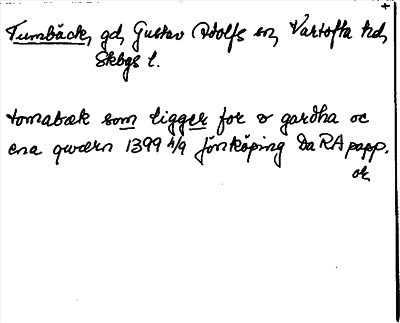 Tumbäck, gd, Gustav Adolfs sn, Vartofta hd,
Skbgs l.
tomabæk som ligger for v gardha oc
ena qwærn 1399 4/9 Jönköping Da RA papp.
or